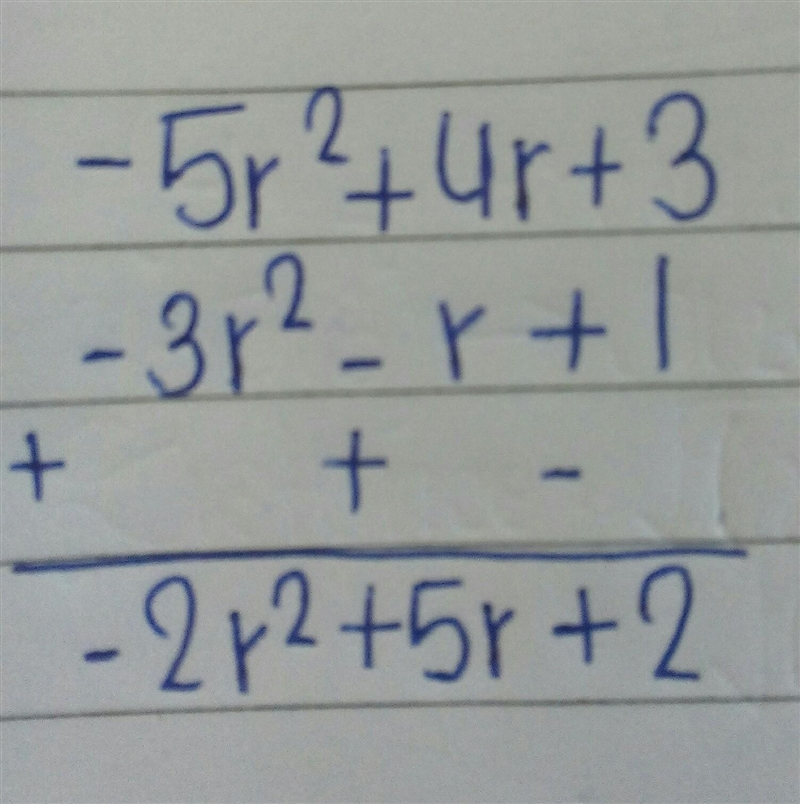 -5r²+4r+3
-3r²-r+1
+ + -
-2r²+5r+2